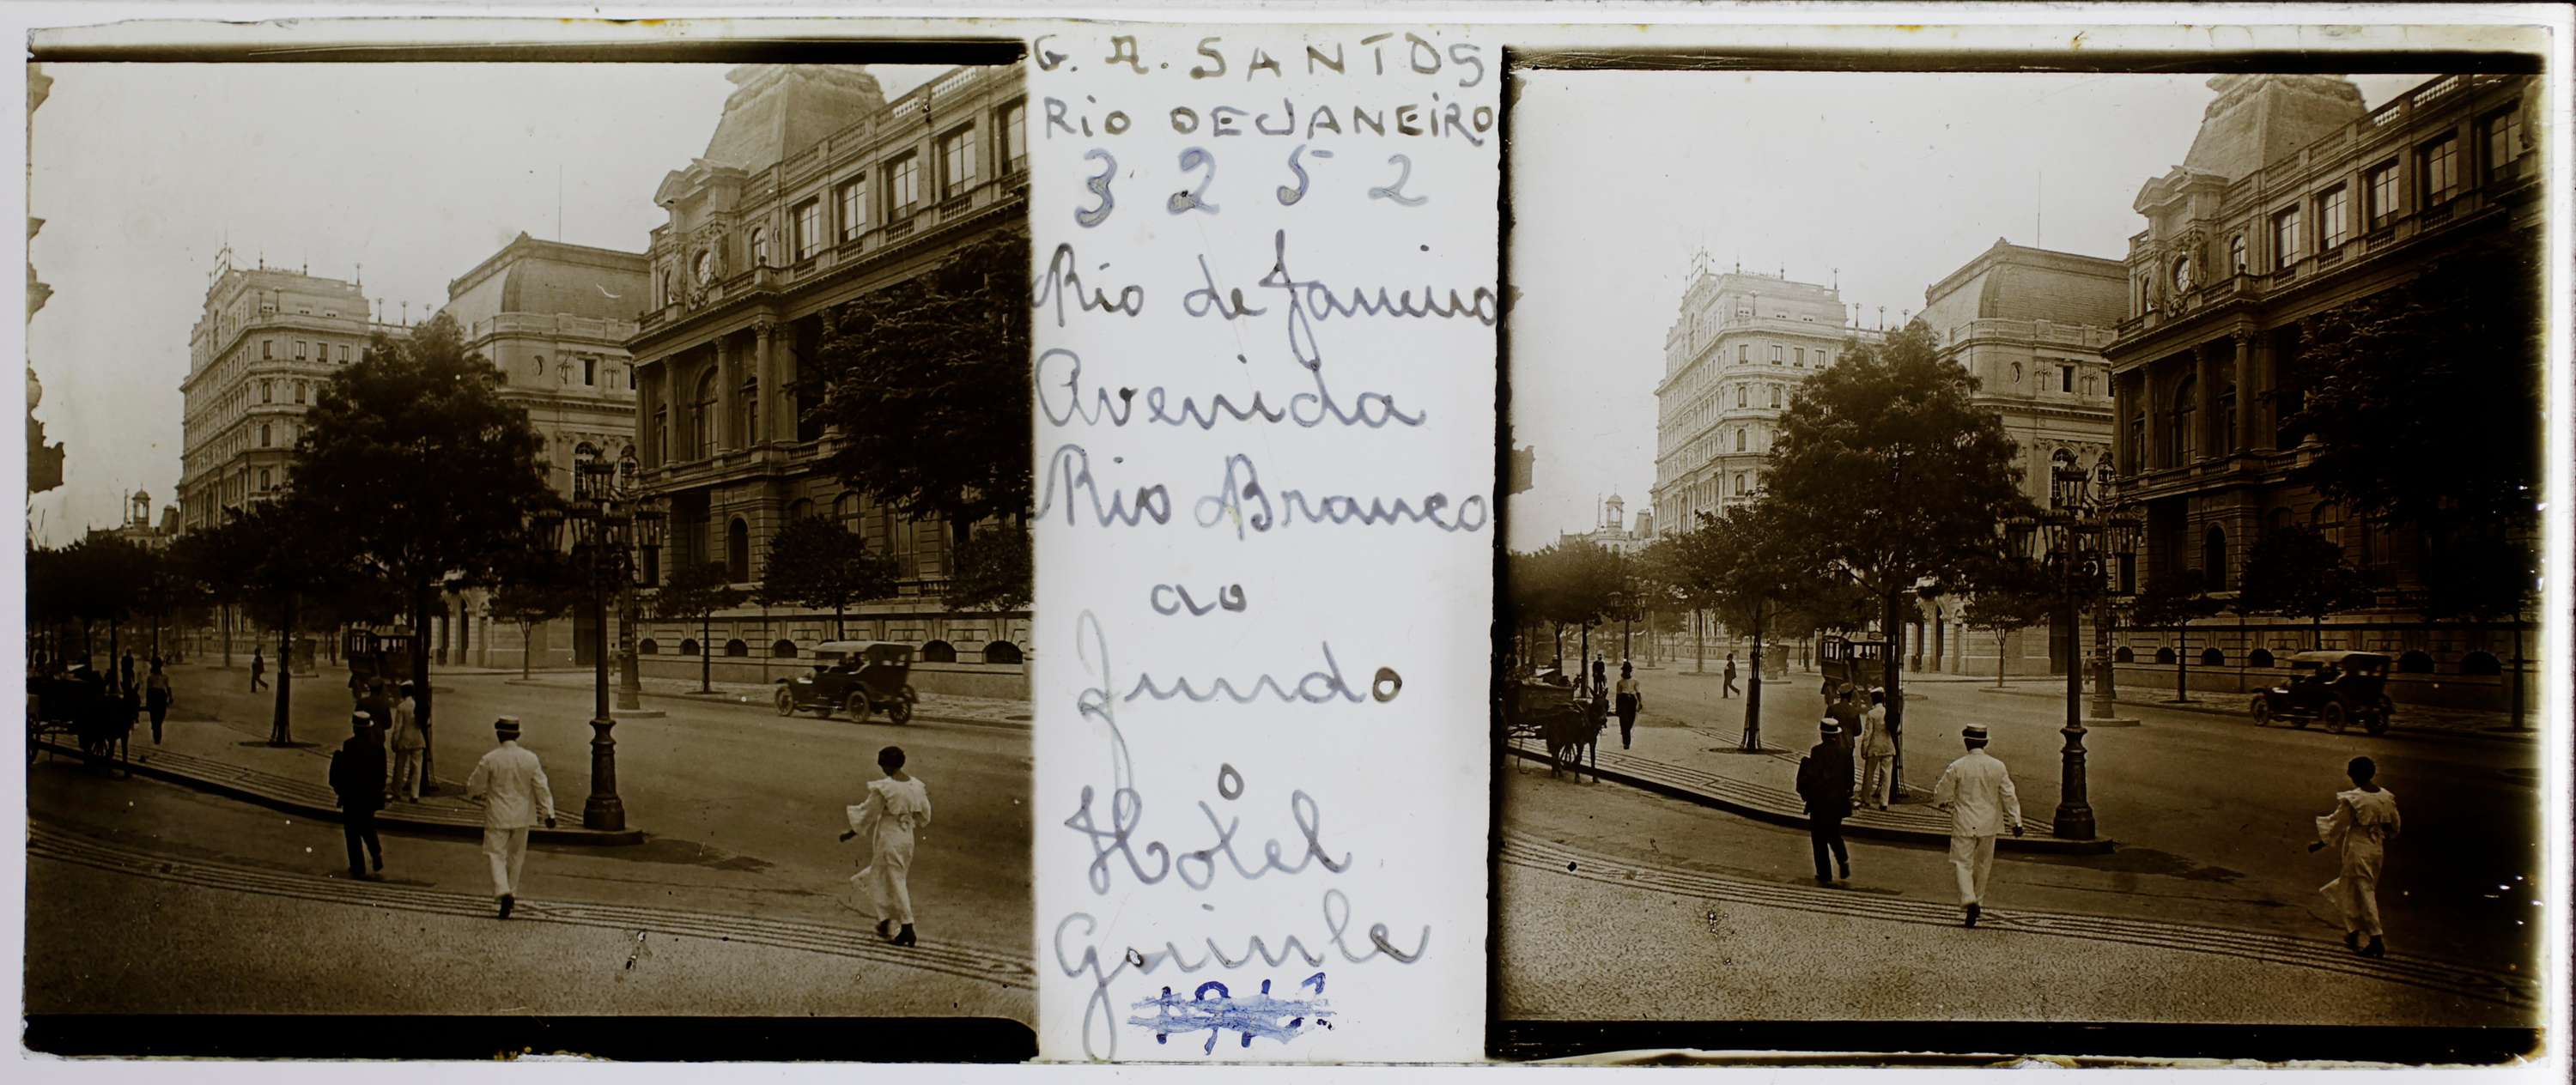 G. A. SANTOS
RiO DE JANEiRO
3 2 5 2
Rio de Janeiro
Avenida
Rio Branco
ao
fundo
o
Hotel